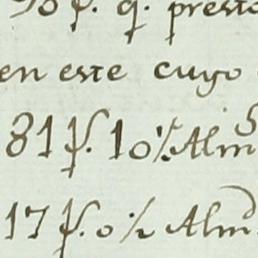 90 p. q. presto
en este cuyo
81 p. 10 % Alm
17 p. 0 % Alm